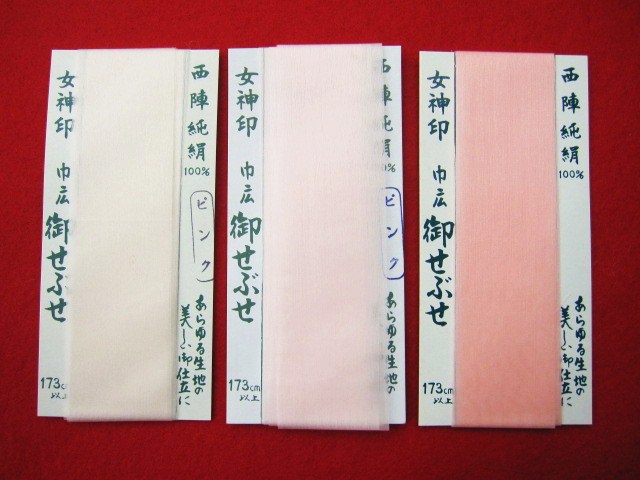 西陣純絹
100%
ピンク
あらゆる生地の
美しい御仕立に
女神印 巾広 御せぶせ
173cm
以上
西陣純絹
%
ピンク
あらゆる生地の
美しい御仕立に
女神印 巾広 御せぶせ
173cm
以上
西陣純絹
100%
あらゆる生地の
美しい御仕立に
女神印 巾広 御せぶせ
173cm
以上